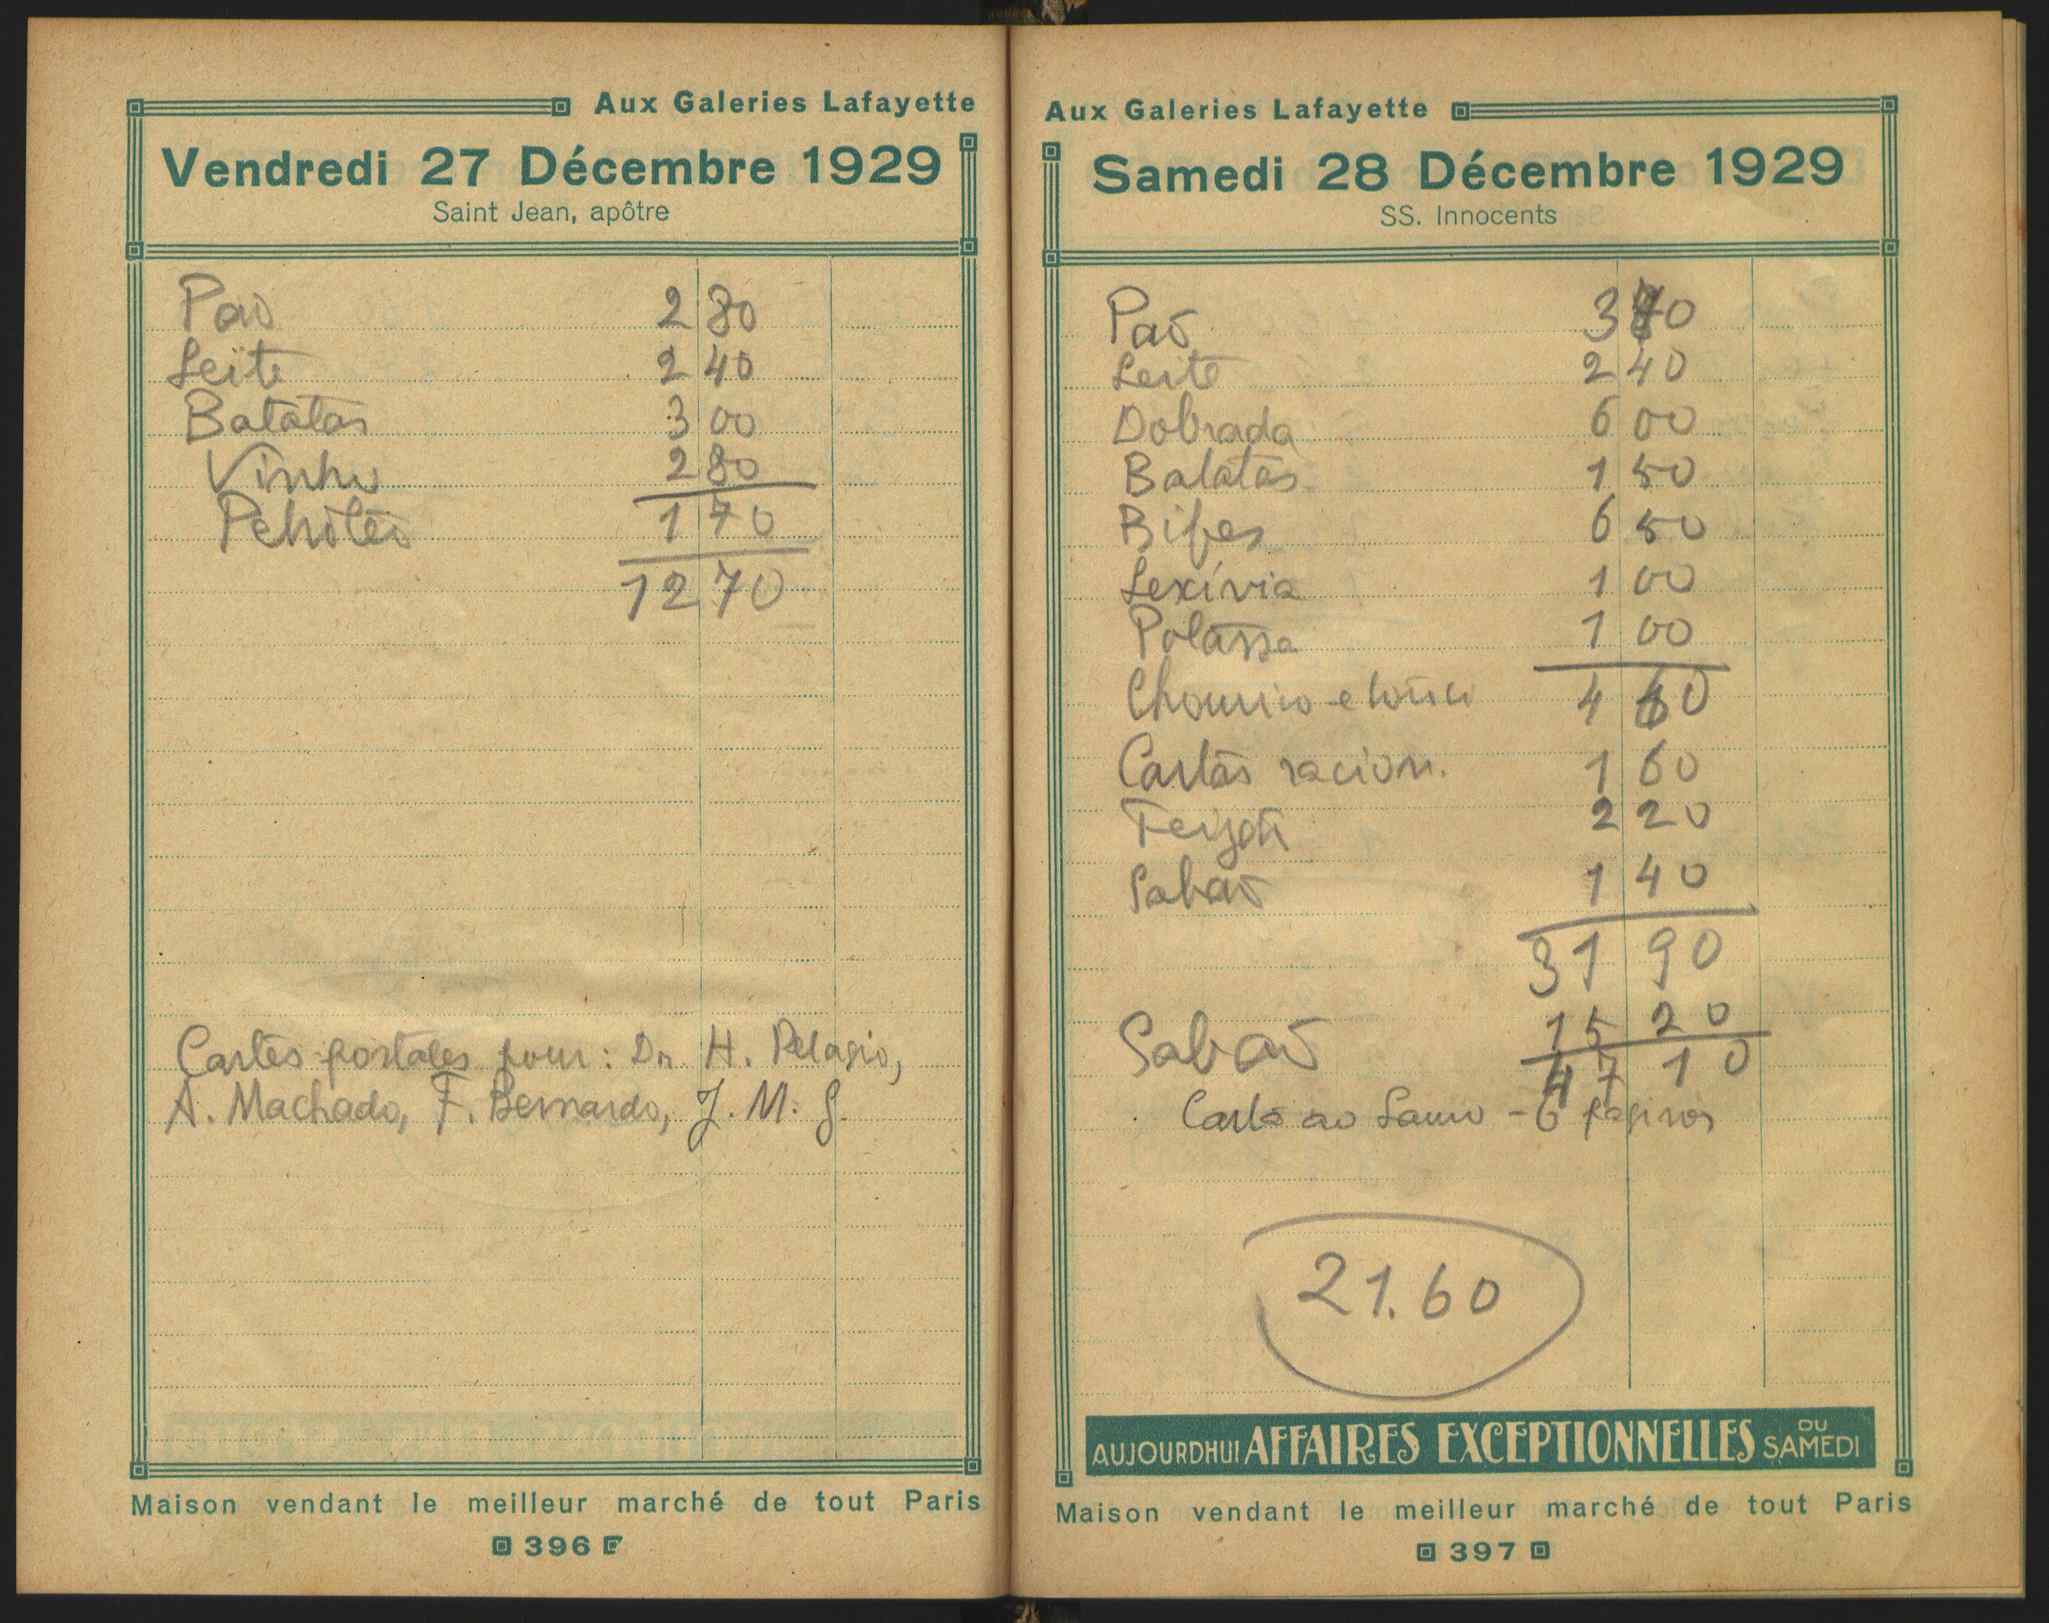 Aux Galeries Lafayette
Vendredi 27 Décembre 1929
Saint Jean, apôtre
Paõ 2 80
Leite 2 40
Batatas 3 00
Vinho 2 80
1 70
12 70
Cartes postales pour : Dr. H. Pelagio,
A. Machado, F. Bernardo, J. M. G.
Maison vendant le meilleur marché de tout Paris
396
Aux Galeries Lafayette
Samedi 28 Décembre 1929
SS. Innocents
Paõ 3 70
Leite 2 40
Dobrada 6 00
Batatas 1 50
Bifes 6 50
Lexívia 1 00
Potassa 1 00
Chouriço e 4 60
Cartas racion. 1 60
Feijão 2 20
Sabaõ 1 40
31 90
Sabaõ 15 20
47 10
Carta ao Lauro - 6 paginas
21.60
AUJOURDHUI AFFAIRES EXCEPTIONNELLES DU SAMEDI
Maison vendant le meilleur marché de tout Paris
397